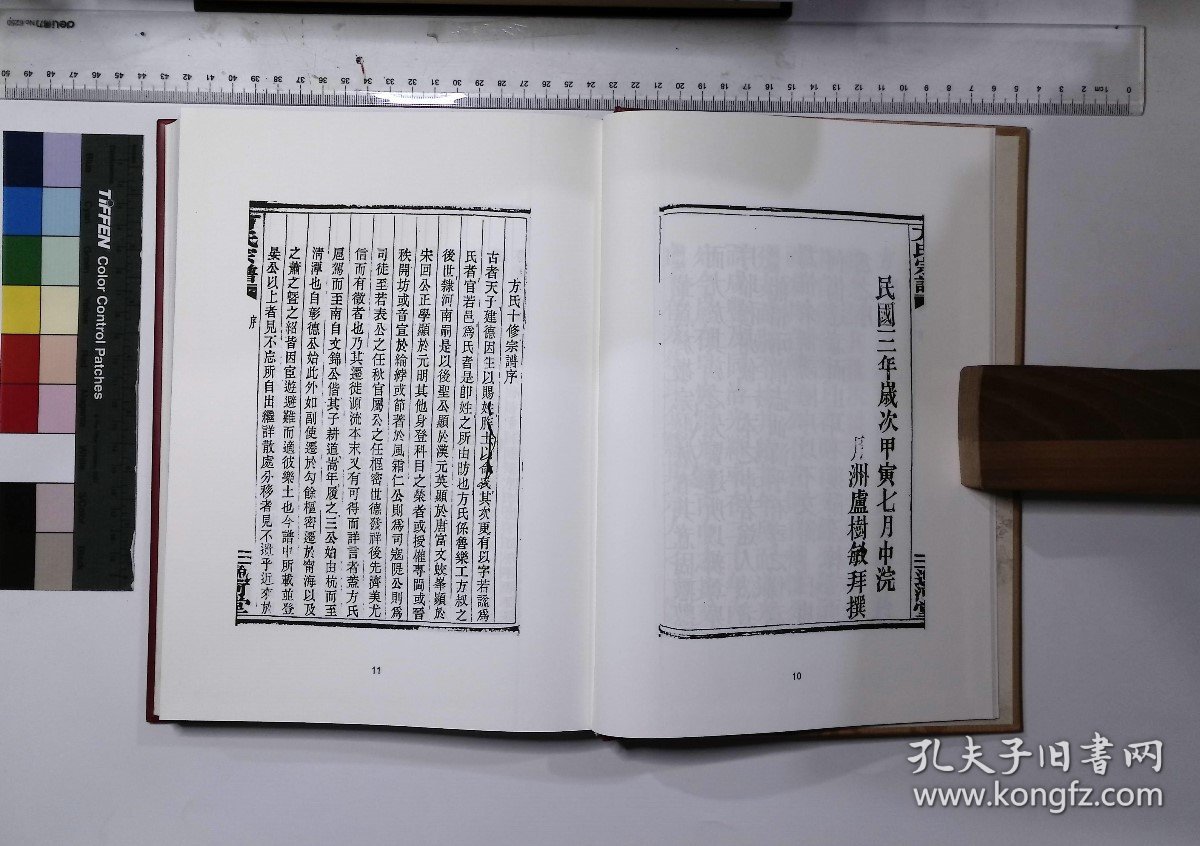 deli 得力 No.6250
TIFFEN Color Control Patches
方氏宗譜
民國三年歲次甲寅七月中浣
月洲盧樹敏拜撰
10
方氏十修宗譜序
古者天子建德因生以賜姓胙土以命氏其次更有以字若諡爲
氏者官若邑爲氏者是卽姓之所由昉也方氏係魯樂工方叔之
後世隸河南嗣是以後聖公顯於漢元英顯於唐富文蛟峯顯於
宋回公正學顯於元明其他身登科目之榮者或授權專閫或晉
秩開坊或音宣於綸綍或節著於風霜仁公則爲司寇隄公則爲
司徒至若表公之任秋官屬公之任樞密世德發祥後先濟美尤
信而有徵者也乃其遷徙源流本末又有可得而詳言者蓋方氏
扈駕而至南自文錦公偕其子耕道嵩年履之三公始由杭而至
清潭也自彰德公始此外如副使遷於勾餘樞密遷於甯海以及
之蕭之暨之紹皆因宦遊避難而適彼樂土也今譜中所載並登
晏公以上者見不忘所自出繼詳散處分移者見不遺乎近來於
方氏宗譜
序
11
孔夫子旧书网
www.kongfz.com